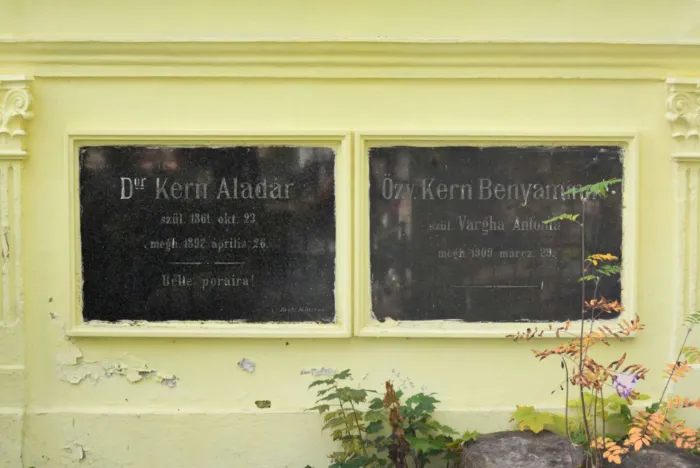 Dᵘʳ Kern Aladár
szül. 1861. okt. 23.
megh. 1892. április. 26.
Béke poraira!
Özv. Kern Benyaminné
szül. Vargha Antonia
megh 1909. marcz. 29.